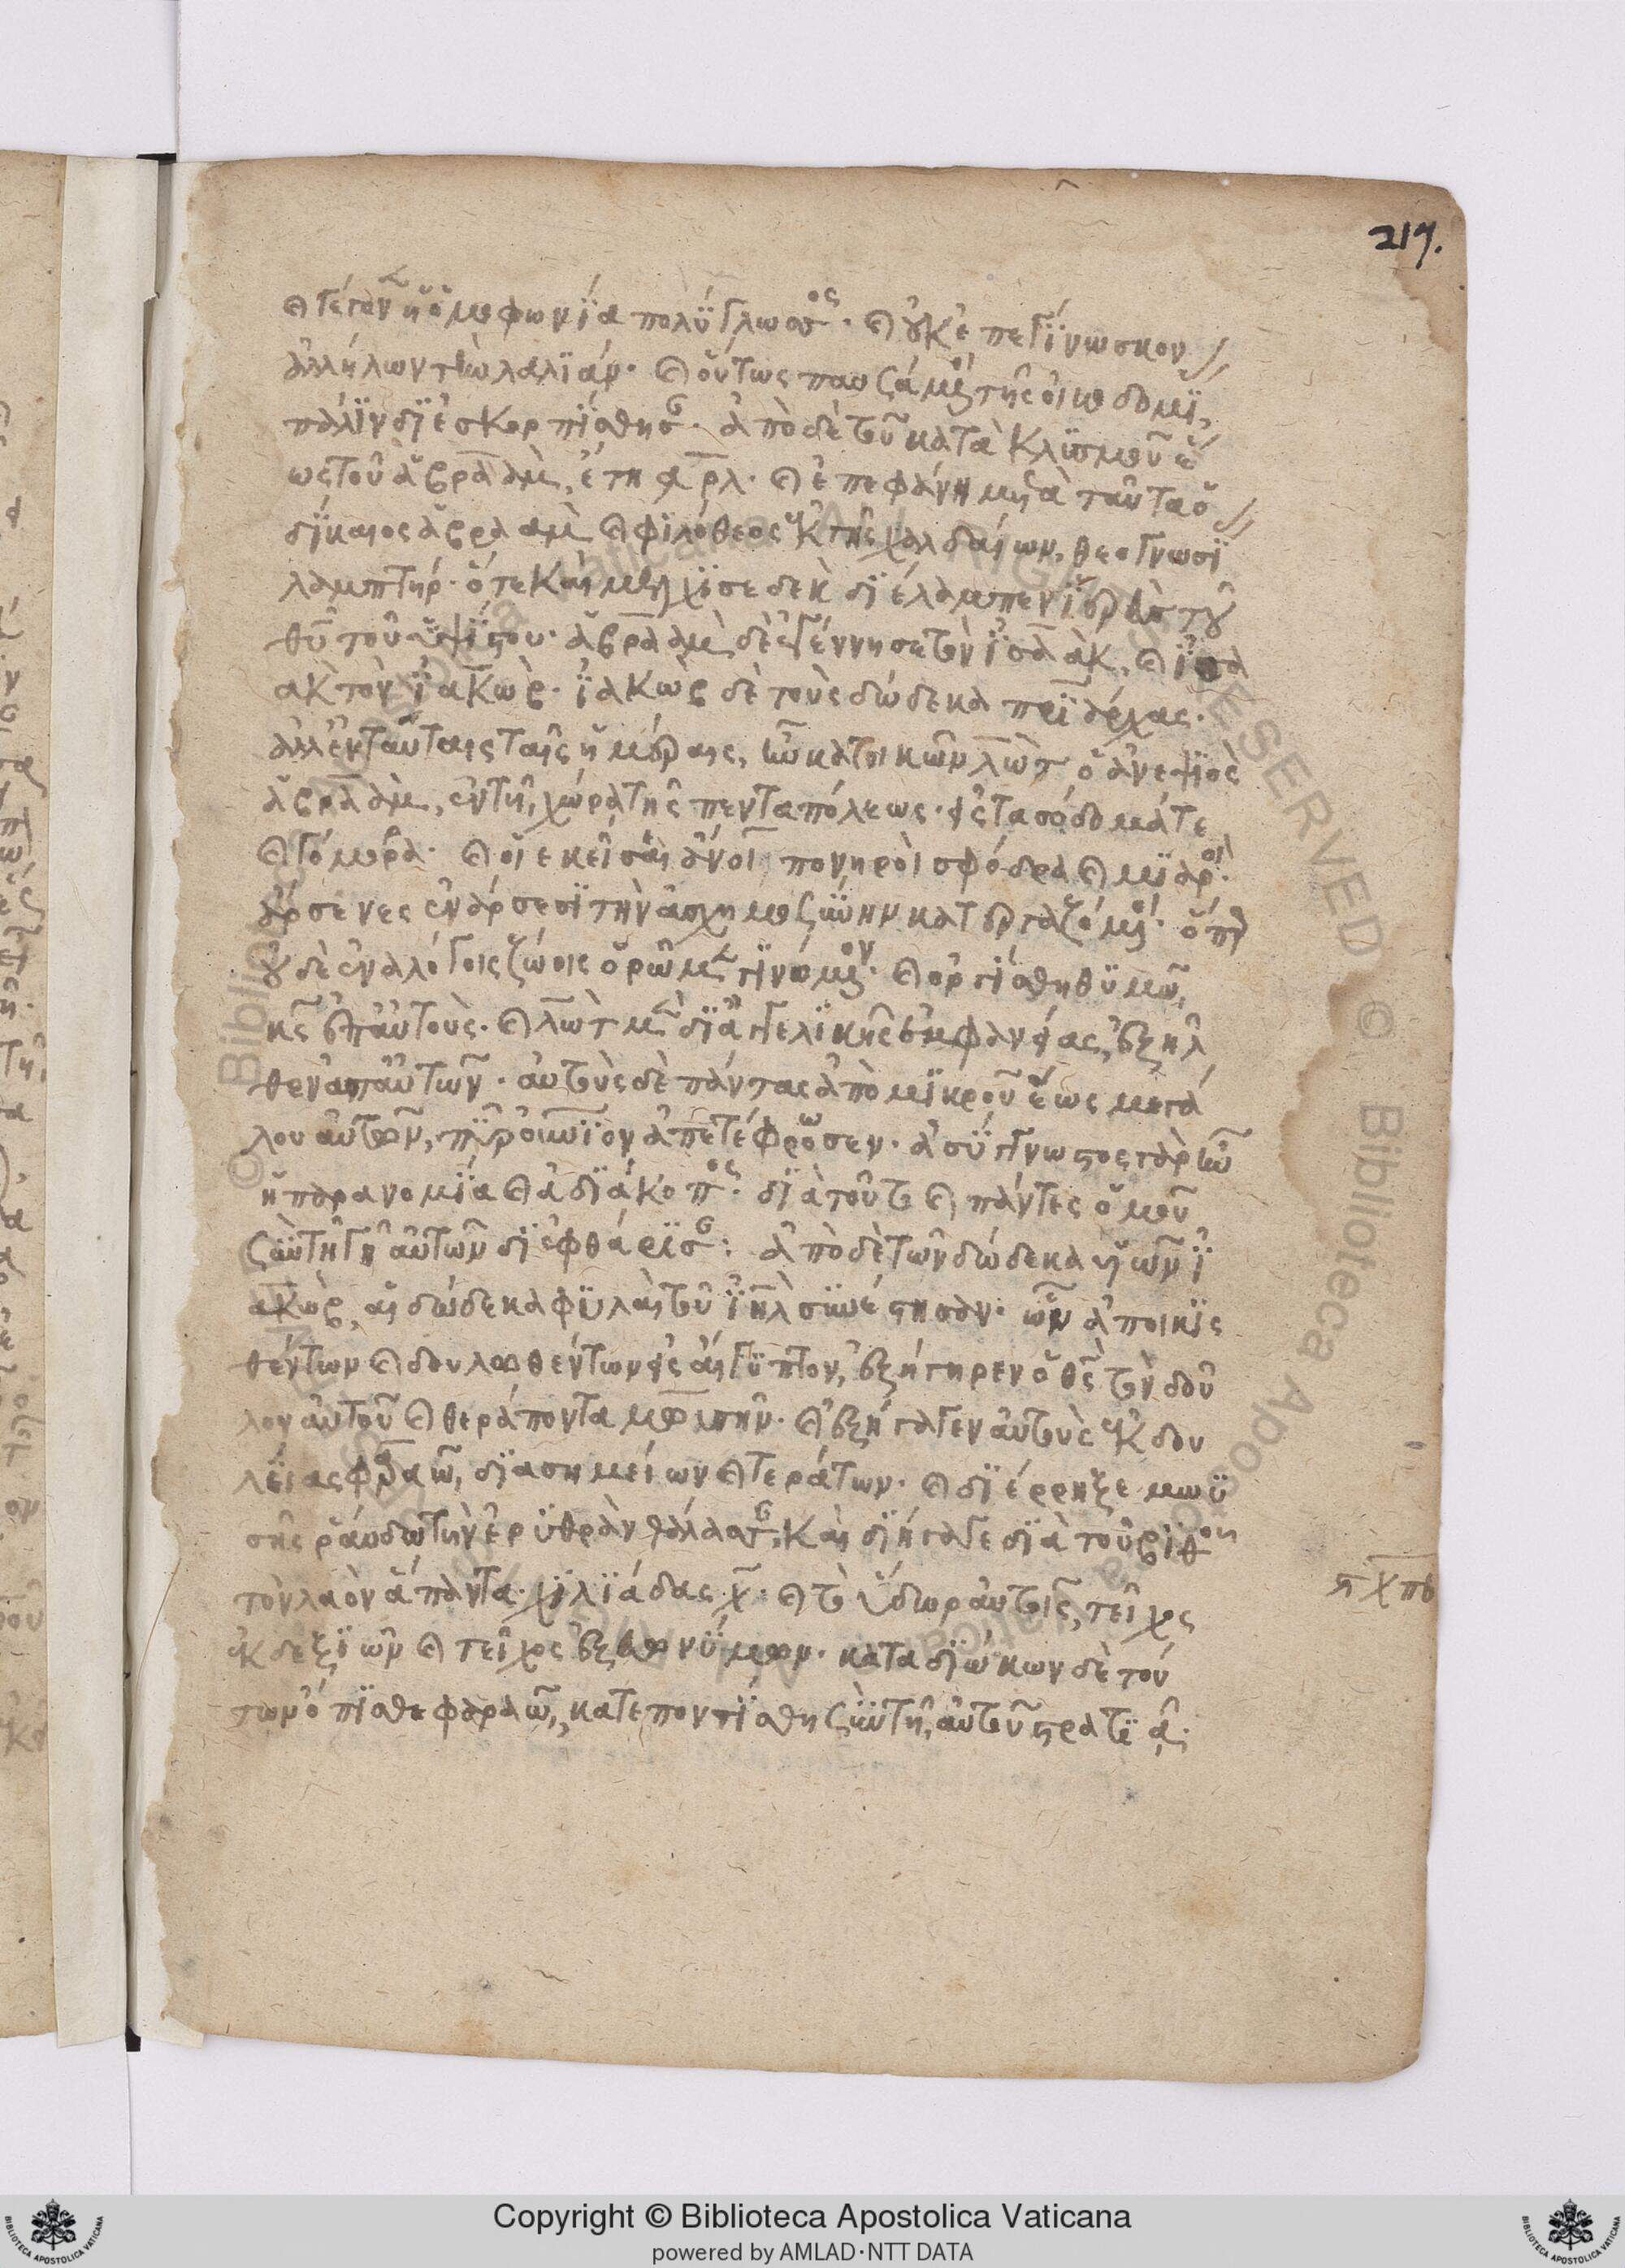 217.
καὶ γέγονεν ἡ ὁμοφωνΐα πολύγλωσσος· καὶ οὐκ ἐπεγΐνωσκον
ἀλλήλων τὴν λαλϊάν· καὶ οὕτως παυσάμενοι τῆς οἰκοδομῆ,
πάλϊν δϊεσκορπΐσθησαν· ἀπὸ δὲ τοῦ κατακλϊσμοῦ ἕ
ως τοῦ ἀβραὰμ, ἔτη ͵αρλ· καὶ ἐπεφάνη μετὰ ταῦτα ὁ
δΐκαιος ἀβραὰμ καὶ φϊλόθεος ἐκ τῆς χαλδαίων, θεογνωσϊ
λαμπτήρ· ὅτε καὶ μελχϊσεδὲκ δϊέλαμπεν ἱερεὺς τοῦ
θῡ τοῦ ὑψΐστου· ἀβραὰμ δὲ ἐγέννησε τὸν ἰσαὰκ, καὶ ἰσα
ὰκ τὸν ἰακώβ· ἰακὼβ δὲ τοὺς δώδεκα πρϊάρχας·
ἀλλ ἐν ταύταις ταῖς ἡμέραις, ἦν κατοικῶν λὼτ ὁ ἀνεψϊὸς
ἀβραὰμ, ἐν τῇ χώρᾳ τῆς πενταπόλεως· εἰς τα σόδομά τε
καὶ γόμορα· καὶ οἱ ἐκεῖσαι ἄνοι πονηροὶ σφόδρα καὶ μϊαροὶ·
ἄρσενες ἐν ἄρσεσϊ τὴν ἀσχημοσύνην κατεργαζόμενοι· ὅπερ
οὐδὲ ἐν αλόγοις ζώοις ὁρῶμεν γϊνόμενον· καὶ ὀργΐσθη θϋμῶ,
κς ἐπ αὐτοὺς· καὶ λὼτ μὲν δϊ ἀγγελϊκῆς ἐμφανείας, ἐξῆλ
θεν ἀπ αὐτῶν· αὐτοὺς δὲ πάντας ἀπὸ μϊκροῦ ἕως μεγά
λου αὐτῶν, πῦρ οὐνϊον ἀπετέφρωσεν· ἀσΰγγνωστος γὰρ ἦν
ἡ παρανομΐα καὶ ἀδϊάκοπος· δϊὰ τοῦτο καὶ πάντες ὁμοῦ
σὺν τῇ γῇ αὐτῶν δϊεφθάρϊσαν: ἀπὸ δὲ τῶν δώδεκα υἱῶν ἰ
ακὼβ, αἱ δώδεκα φϋλαὶ τοῦ ἰηλ σϋνέστησαν· ὧν ἀποικϊς
θέντων καὶ δουλωθέντων εἰς αἴγϋπτον, ἐξήγηρεν ὁ θς τὸν δοῦ
λον αὐτοῦ καὶ θεράποντα μωσῆν· καὶ ἐξήγαγεν αὐτοὺς ἐκ δου
λείας φαραὼ, δϊα σημείων καὶ τεράτων· καὶ δϊέρρηξε μωϋ
σῆς ράβδω τὴν ἐρϋθρὰν θάλασσαν, καὶ δϊήγαγε δϊὰ τοῦ βϋθοῦ
τὸν λαὸν ἅπαντα· χϊλϊάδας χ· καὶ τὸ ὕδωρ αὐτοῖς, τεῖχος
ἐκ δεξϊῶν καὶ τεῖχος ἐξ εὐωνΰμων· καταδϊώκων δὲ τού
των ὄπϊσθε φαραὼ, κατεποντΐσθη σὺν τῇ αὐτοῦ στρατϊᾷ·